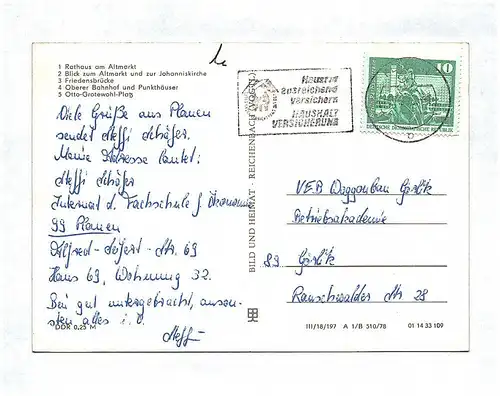 1 Rathaus am Altmarkt
2 Blick zum Altmarkt und zur Johanniskirche
3 Friedensbrücke
4 Oberer Bahnhof und Punkthäuser
5 Otto-Grotewohl-Platz
Viele Grüße aus Plauen
sendet Steffi Schäfer.
Meine Adresse lautet:
Steffi Schäfer
Internat d. Fachschule f. Ökonomie
99 Plauen
Alfred-Seifert-Str. 69
Haus 69, Wohnung 32.
Bin gut untergebracht, anson-
sten alles i. O.
Steffi
DDR 0,25 M
BILD UND HEIMAT · REICHENBACH (VOGTL)
Hausrat
ausreichend
versichern
HAUSHALT
VERSICHERUNG
10
DEUTSCHE DEMOKRATISCHE REPUBLIK
VEB Waggonbau Görlitz
Betriebsakademie
89 Görlitz
Rauschwalder Str. 28
III/18/197 A 1/B 510/78 01 14 33 109